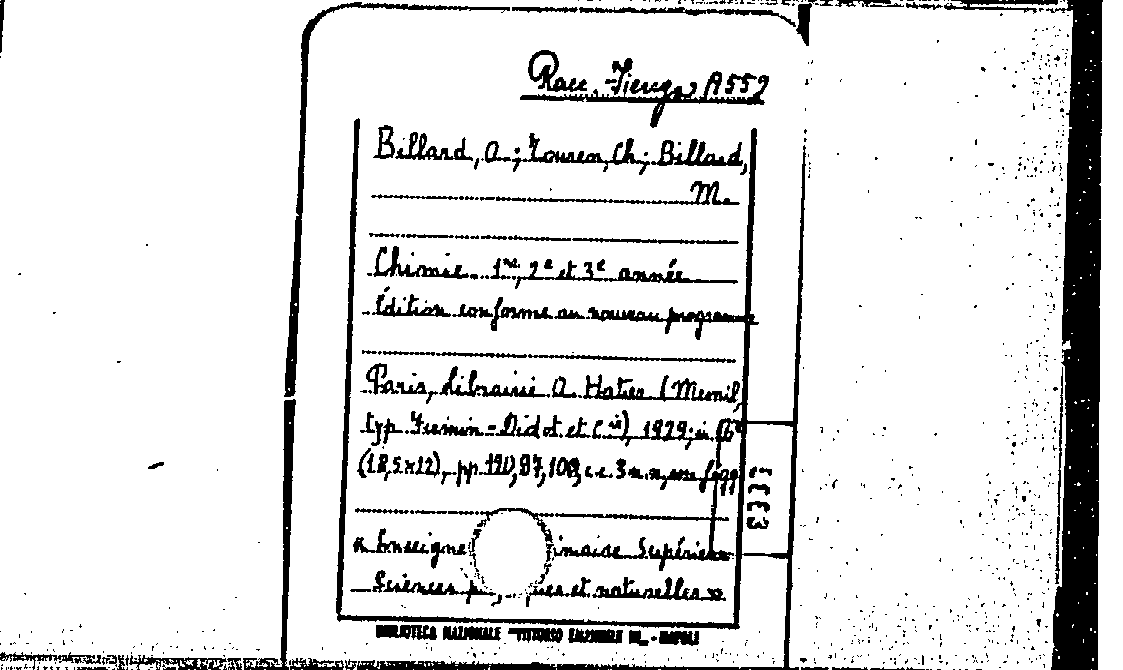 Racc. A552
Billard, A.; Touren, Ch; Billard,
M.
Chimie 1re, 2e et 3e année
Édition conforme au nouveau programme
Paris, librairie A Hatier (Mesnil,
typ Firmin-Didot et Cie), 1929; in
(18,5x12), pp. 190, 97, 108, figg
« Enseigne imaire Supérieur
Sciences p ques et naturelles »
BIBLIOTECA NAZIONALE "VITTORIO EMANUELE III" - NAPOLI